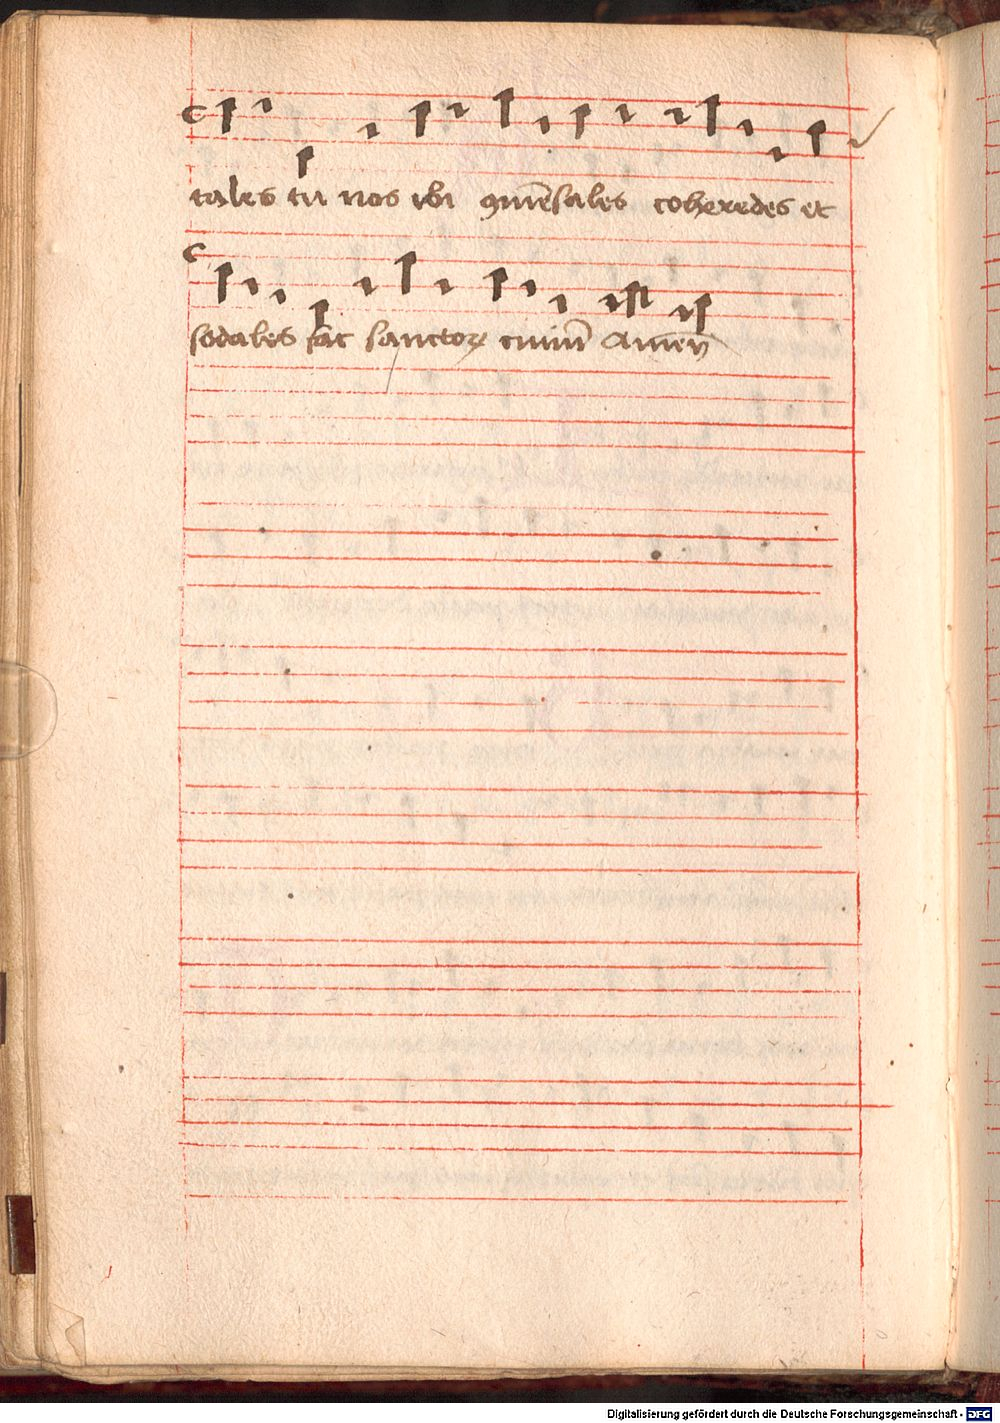 tales tu nos ibi ꝯmēsales coheredes et
sodales fac sanctoꝝ ciuiū Amen
Digitalisierung gefördert durch die Deutsche Forschungsgemeinschaft - DFG